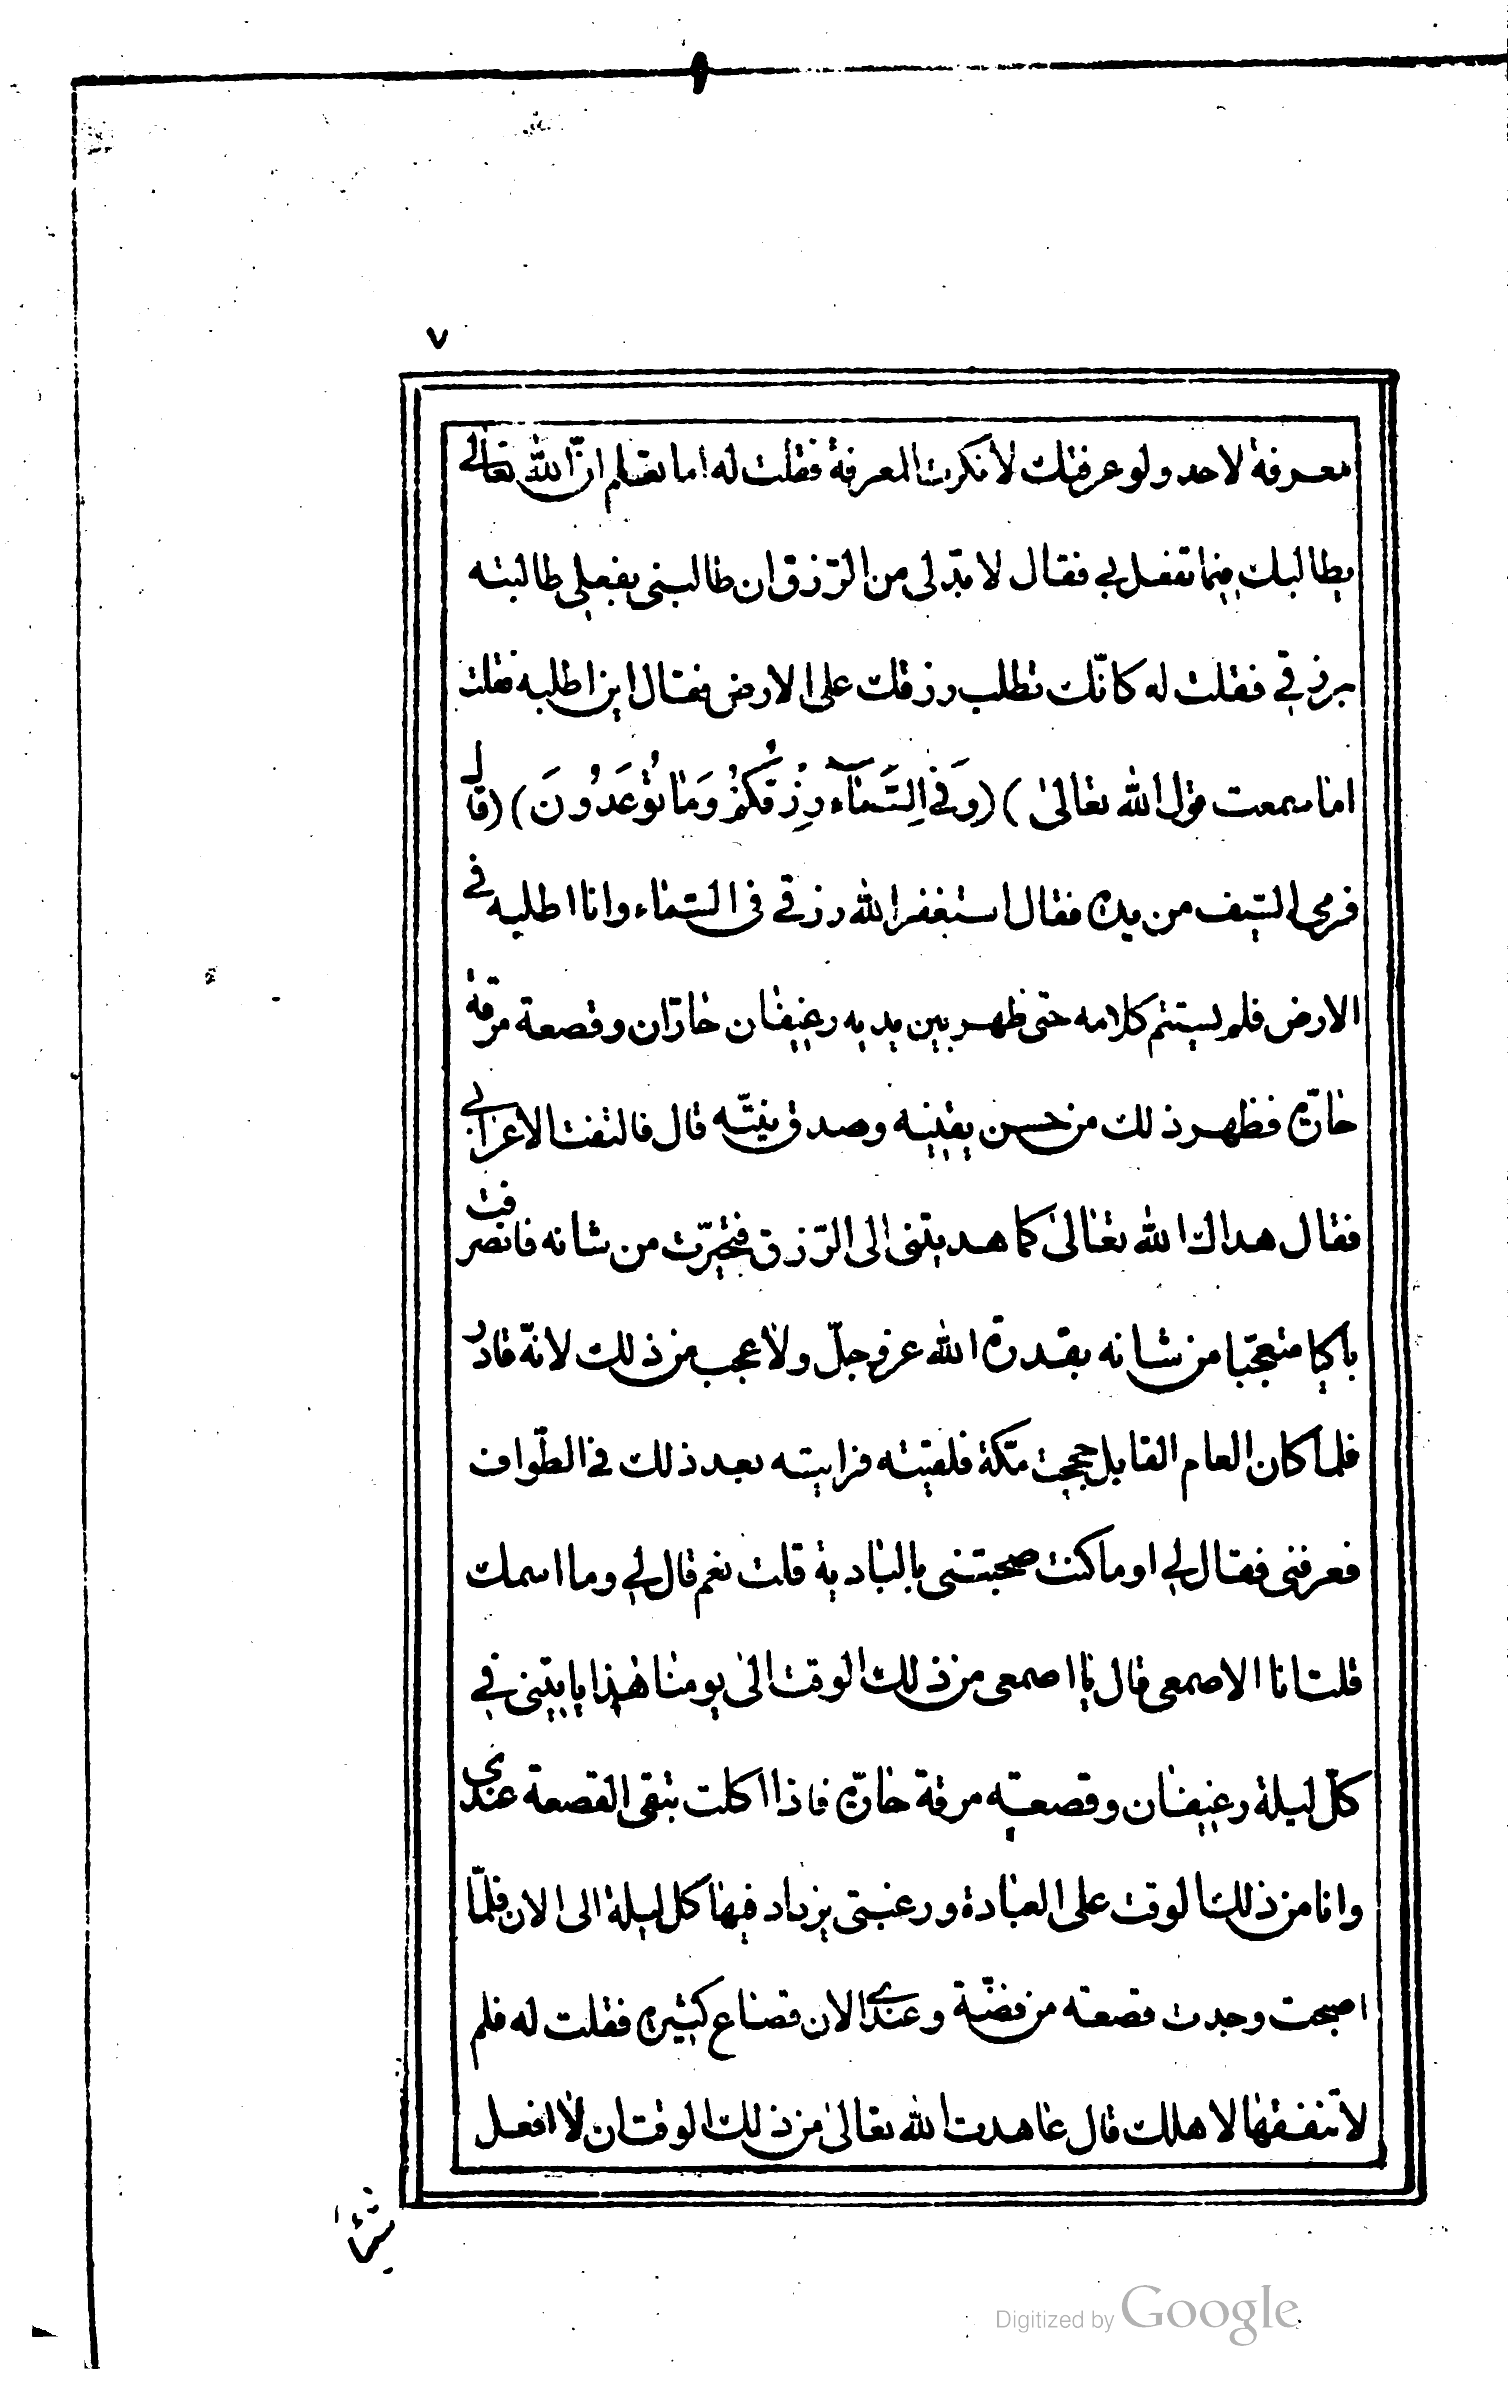 ٧
معرفة لاحد ولو عرفتك لانكرت المعرفة فقلت له اما تعلم ان الله تعالى
يطالبك فيما تفعل بي فقال لا بدّ لى من الرّزق ان طالبنى بفعلى طالبته
برزقي فقلت له كانّك تطلب رزقك على الارض فقال اين اطلبه فقلت
اما سمعت قول الله تعالىٰ ) (وَفِي السَّمَآءِ رِزْقُكُمْ وَمَا تُوْعَدُونَ) (قال
فرمى السّيف من يده فقال استغفر الله رزقي فى السّماء وانا اطلبه في
الارض فلم يستتم كلامه حتى ظهر بين يديه رغيفان حارّان وقصعة مرقة
حارّة فظهر ذلك من حسن يقينه وصدق نيّته قال فالتفت الاعرابي
فقال هداك الله تعالىٰ كما هديتنى الى الرّزق فتحيّرت من شانه فانصرفت
باكيا متعجّبا من شانه بقدرة الله عز وجلّ ولا عجب من ذلك لانّه قادر
فلما كان العام القابل حججت مكّة فلقيته فرايته بعد ذلك في الطّواف
فعرفنى فقال لي اوما كنت صحبتنى بالبادية قلت نعم قال لي وما اسمك
قلت انا الاصمعى قال يا اصمعى من ذلك الوقت الىٰ يومنا هذا ياتينى في
كلّ ليلة رغيفان وقصعة مرقة حارّة فاذا اكلت تبقى القصعة عندى
وانا من ذلك الوقت على العبادة ورغبتى يزداد فيها كل ليلة الى الان فلمّا
اصبحت وجدت قصعة من فضّة وعندى الان قصاع كثيرة فقلت له فلم
لا تنفقها لاهلك قال عاهدت الله تعالىٰ من ذلك الوقت ان لا افعل
شيئا
Digitized by Google